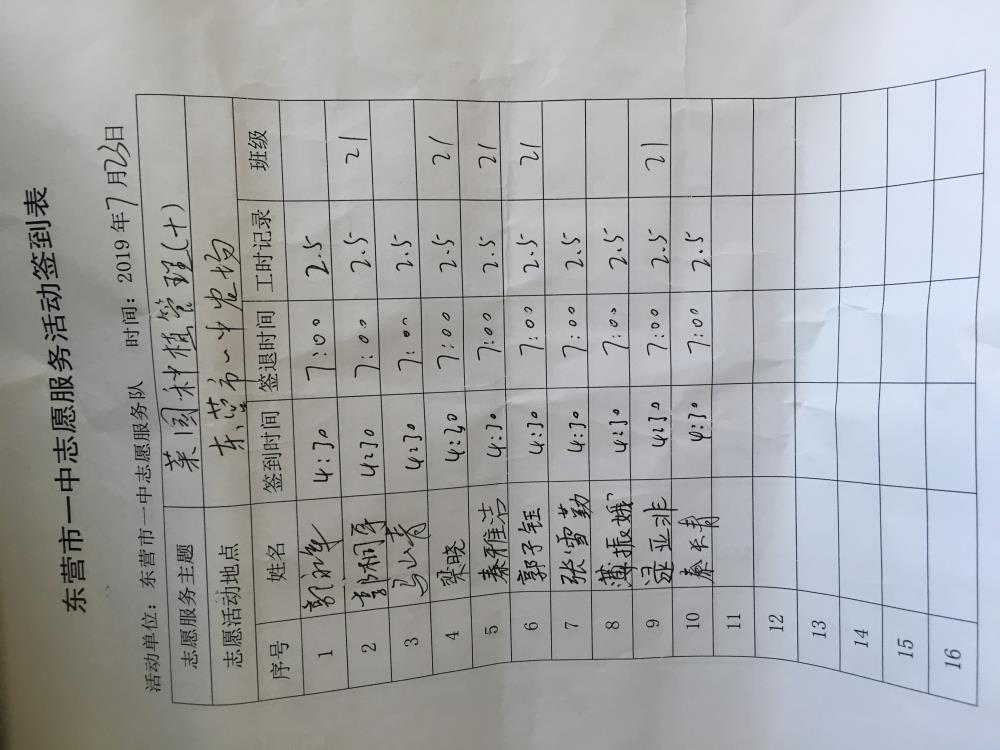 东营市一中志愿服务活动签到表
活动单位：东营市一中志愿服务队 时间：2019年7月23日
志愿服务主题 菜园种植管理(十)
志愿活动地点 东营市一中农场
序号 姓名 签到时间 签退时间 工时记录 班级
1 郭永军 4:30 7:00 2.5
2 郭桐君 4:30 7:00 2.5 21
3 马山青 4:30 7:00 2.5
4 梁晓 4:30 7:00 2.5 21
5 秦雅洁 4:30 7:00 2.5 21
6 郭子钰 4:30 7:00 2.5 21
7 张雪勤 4:30 7:00 2.5
8 薄振娥 4:30 7:00 2.5
9 逯亚非 4:30 7:00 2.5 21
10 秦长青 4:30 7:00 2.5
11
12
13
14
15
16